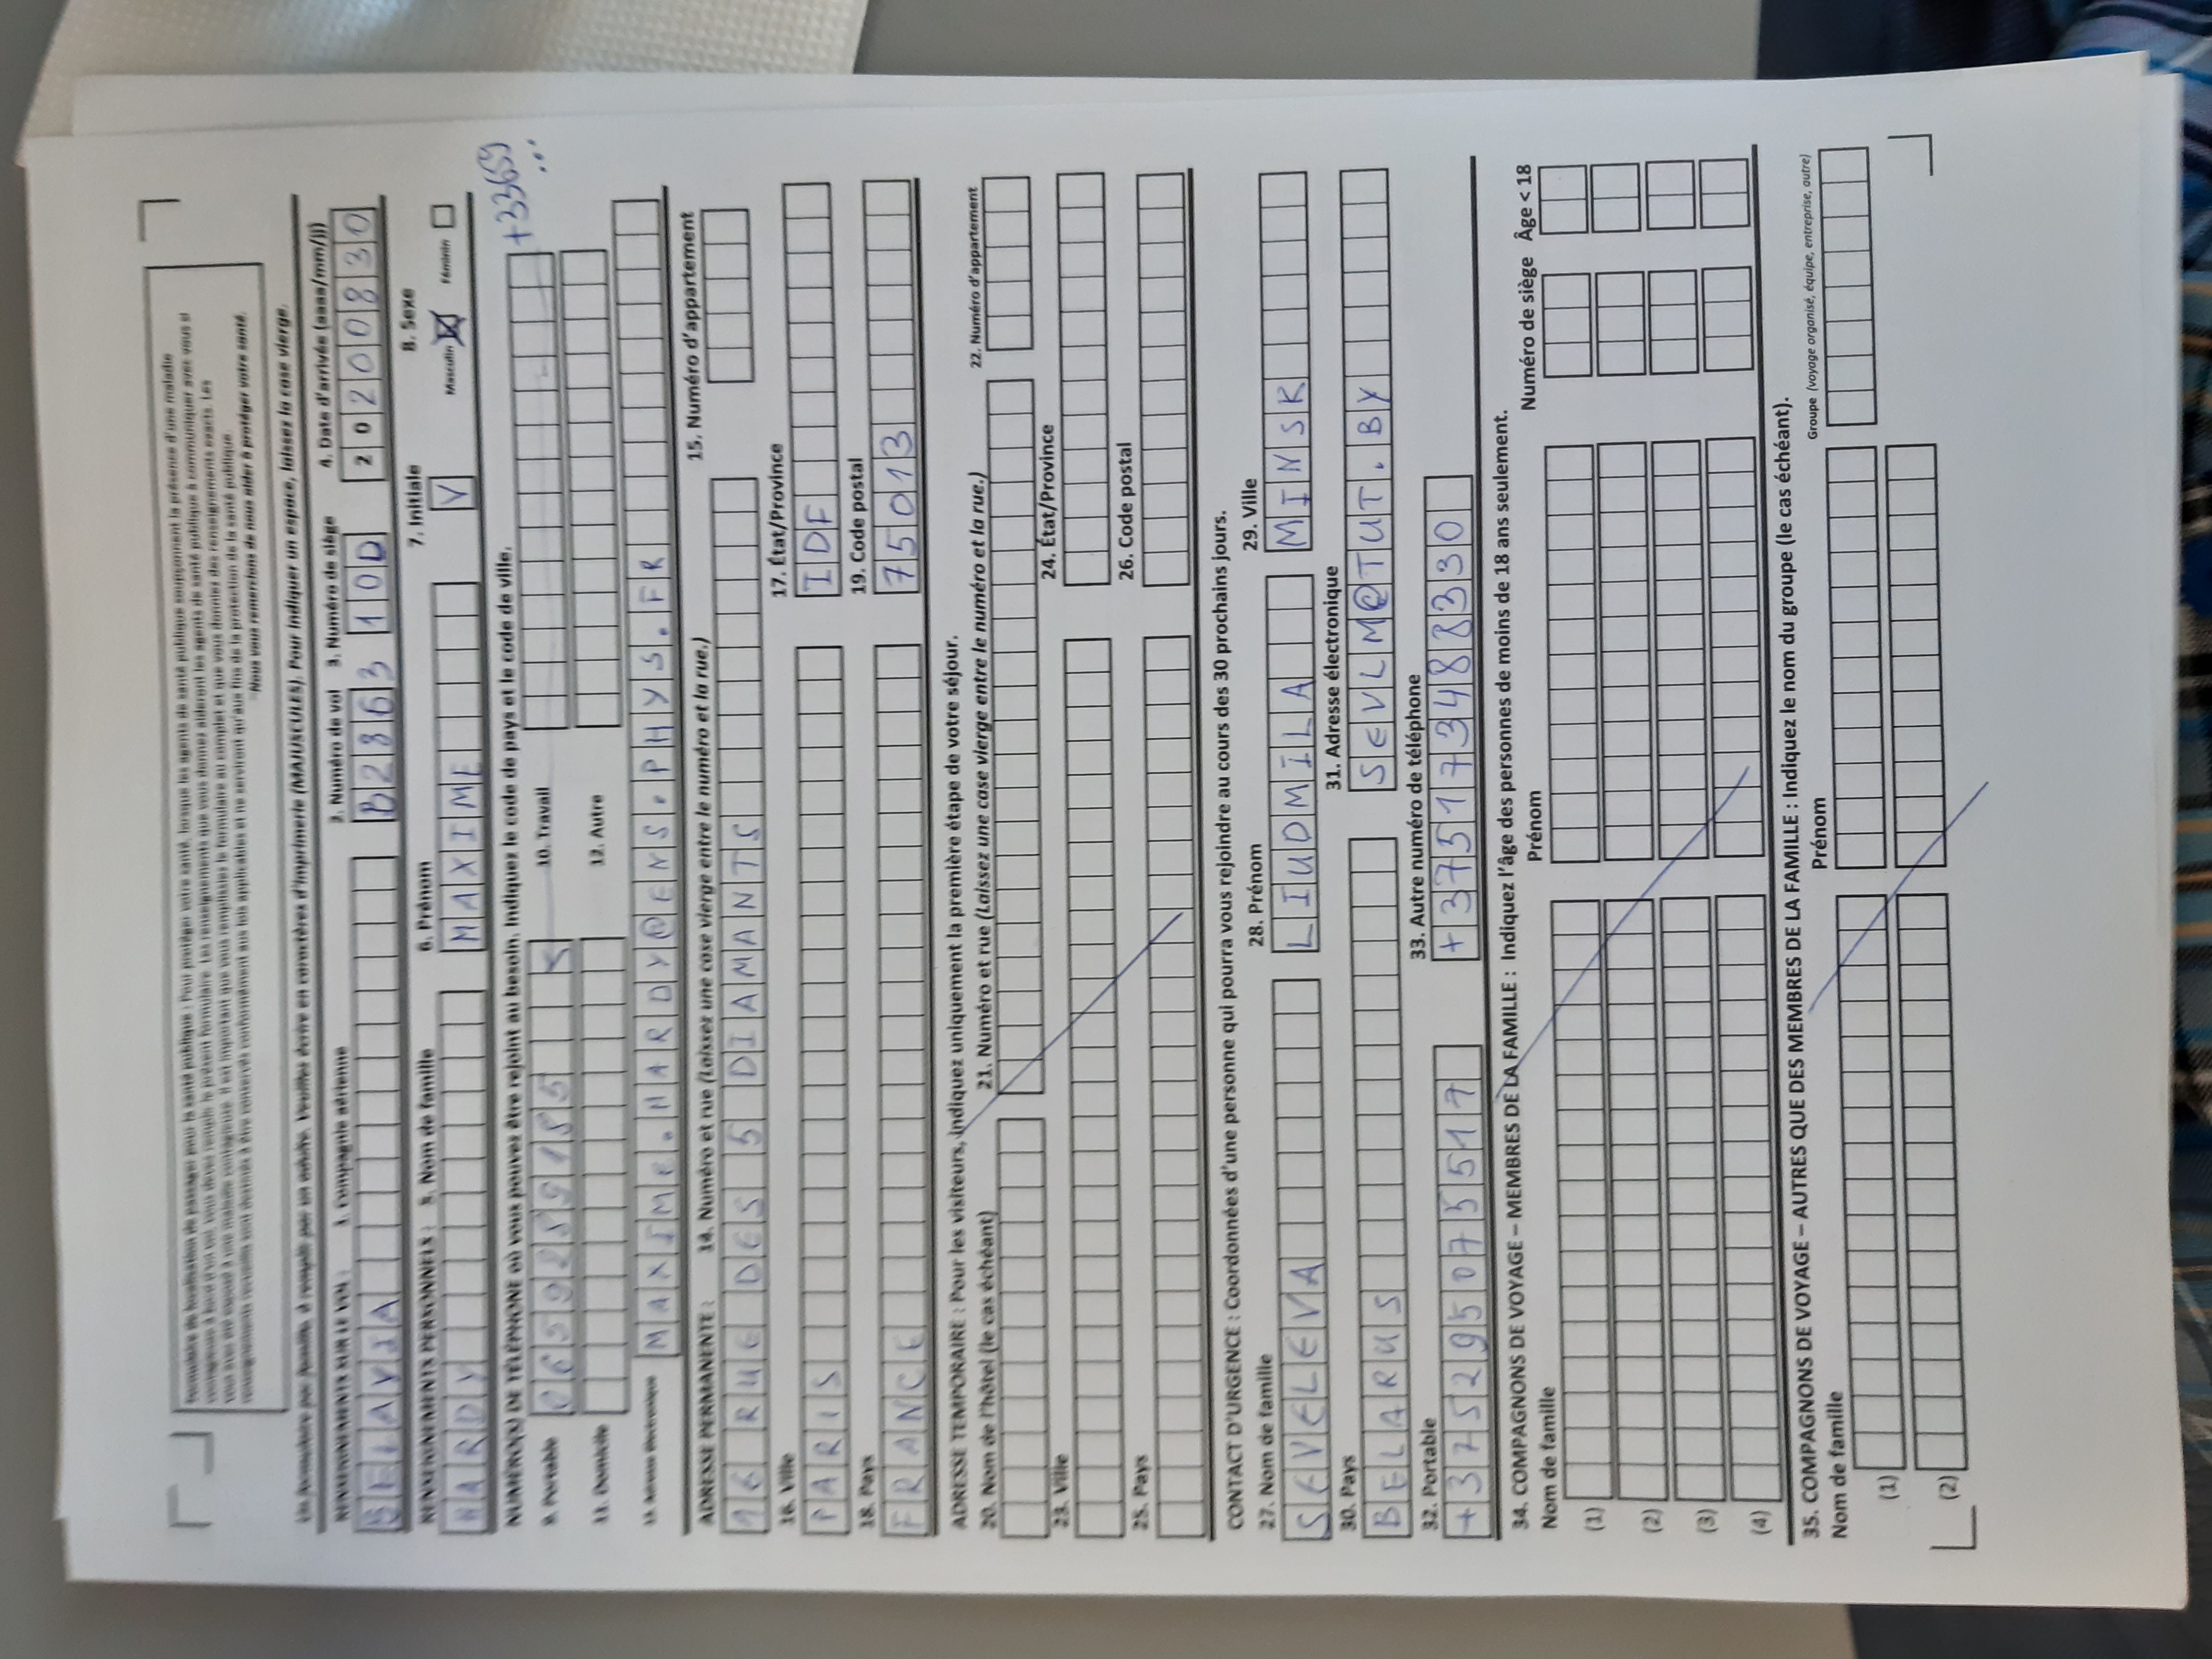 Formulaire de localisation de passager pour la santé publique : Pour protéger votre santé, lorsque les agents de santé publique soupçonnent la présence d'une maladie
contagieuse à bord d'un vol, vous devez remplir le présent formulaire. Les renseignements que vous donnez aideront les agents de santé publique à communiquer avec vous si
vous avez été exposé à une maladie contagieuse. Il est important que vous remplissiez le formulaire au complet et que vous donniez des renseignements exacts. Les
renseignements recueillis sont destinés à être conservés conformément aux lois applicables et ne serviront qu'aux fins de la protection de la santé publique.
Nous vous remercions de nous aider à protéger votre santé.
Un formulaire par famille, à remplir par un adulte. Veuillez écrire en caractères d'imprimerie (MAJUSCULES). Pour indiquer un espace, laissez la case vierge.
RENSEIGNEMENTS SUR LE VOL : 1. Compagnie aérienne 2. Numéro de vol 3. Numéro de siège 4. Date d'arrivée (aaaa/mm/jj)
BELAVIA B2863 10D 20200830
RENSEIGNEMENTS PERSONNELS : 5. Nom de famille 6. Prénom 7. Initiale 8. Sexe
HARDY MAXIME V Masculin Féminin
NUMÉRO(S) DE TÉLÉPHONE où vous pouvez être rejoint au besoin. Indiquez le code de pays et le code de ville.
+33659
...
9. Portable 0659289185 10. Travail
11. Domicile 12. Autre
13. Adresse électronique MAXIME.HARDY@ENS.PHYS.FR
ADRESSE PERMANENTE : 14. Numéro et rue (Laissez une case vierge entre le numéro et la rue.) 15. Numéro d'appartement
16 RUE DES 5 DIAMANTS
16. Ville 17. État/Province
PARIS IDF
18. Pays 19. Code postal
FRANCE 75013
ADRESSE TEMPORAIRE : Pour les visiteurs, indiquez uniquement la première étape de votre séjour.
20. Nom de l'hôtel (le cas échéant) 21. Numéro et rue (Laissez une case vierge entre le numéro et la rue.) 22. Numéro d'appartement
23. Ville 24. État/Province
25. Pays 26. Code postal
CONTACT D'URGENCE : Coordonnées d'une personne qui pourra vous rejoindre au cours des 30 prochains jours.
27. Nom de famille 28. Prénom 29. Ville
SEVELEVA LIUDMILA MINSK
30. Pays 31. Adresse électronique
BELARUS SEVLM@TUT.BY
32. Portable 33. Autre numéro de téléphone
+375295075517 +375173488330
34. COMPAGNONS DE VOYAGE – MEMBRES DE LA FAMILLE : Indiquez l'âge des personnes de moins de 18 ans seulement.
Nom de famille Prénom Numéro de siège Âge < 18
(1)
(2)
(3)
(4)
35. COMPAGNONS DE VOYAGE – AUTRES QUE DES MEMBRES DE LA FAMILLE : Indiquez le nom du groupe (le cas échéant).
Nom de famille Prénom Groupe (voyage organisé, équipe, entreprise, autre)
(1)
(2)